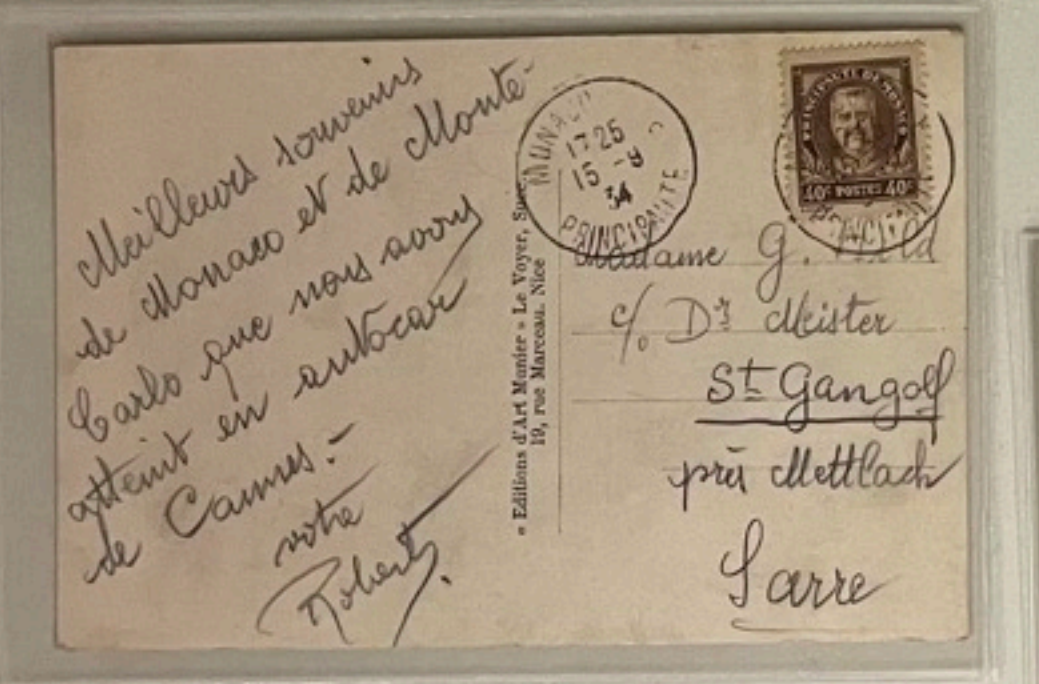 Meilleurs souvenirs
de Monaco et de Monte-
Carlo que nous avons
atteint en autocar
de Cannes.-
votre
Robert.
« Editions d'Art Munier » Le Voyer, Succ.
19, rue Marceau. Nice
MONACO
17 25
15 -9
34
PRINCIPAUTE
PRINCIPAUTE DE MONACO
40c POSTES 40c
Madame G.
c/o. Dr Meister
St Gangolf
près Mettlach
Sarre